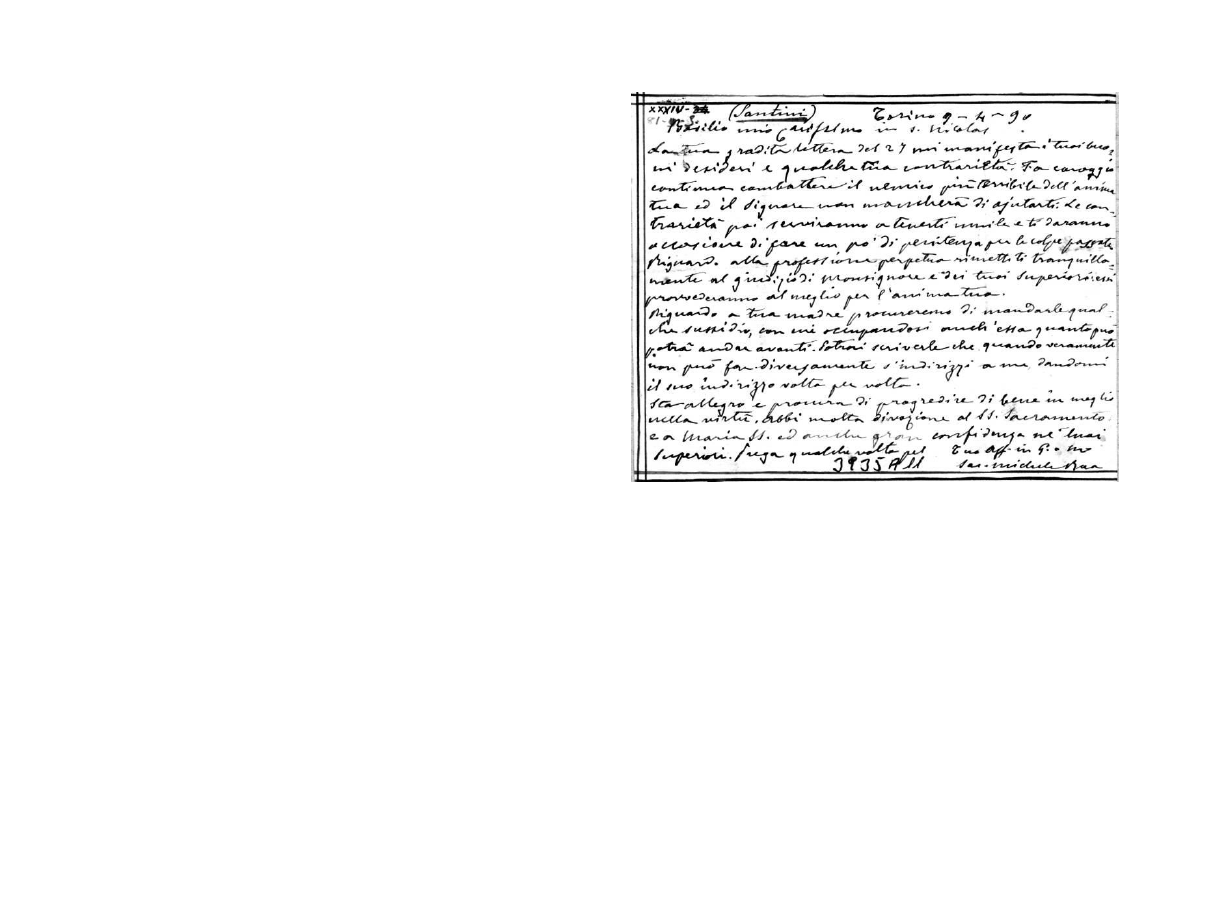 XXXIV-24 (Santini) Torino 9-4-90
Basilio mio carissimo in S. Nicolas
La tua gradita lettera del 27 mi manifesta i tuoi buo-
ni desideri e qualche tua contrarietà. Fa coraggio
continua combattere il nemico più terribile dell'anima
tua ed il Signore non mancherà di ajutarti. Le con-
trarietà poi serviranno a tenerti umile e ti daranno
occasione di fare un po' di penitenza per le colpe passate
Riguardo alla professione perpetua rimettiti tranquilla-
mente al giudizio di Monsignore e dei tuoi Superiori: essi
provvederanno al meglio per l'anima tua.
Riguardo a tua madre procureremo di mandarle qual-
che sussidio, con cui occupandosi anch'essa quanto può
potrà andar avanti. Potrai scriverle che quando veramente
non può far diversamente s'indirizzi a me, dandomi
il suo indirizzo volta per volta.
Sta allegro e procura di progredire di bene in meglio
nella virtù. Abbi molta divozione al SS. Sacramento
e a Maria SS. ed anche gran confidenza ne' tuoi
Superiori. Prega qualche volta pel Tuo Aff. in G. e M.
3935A11 Sac. Michele Rua